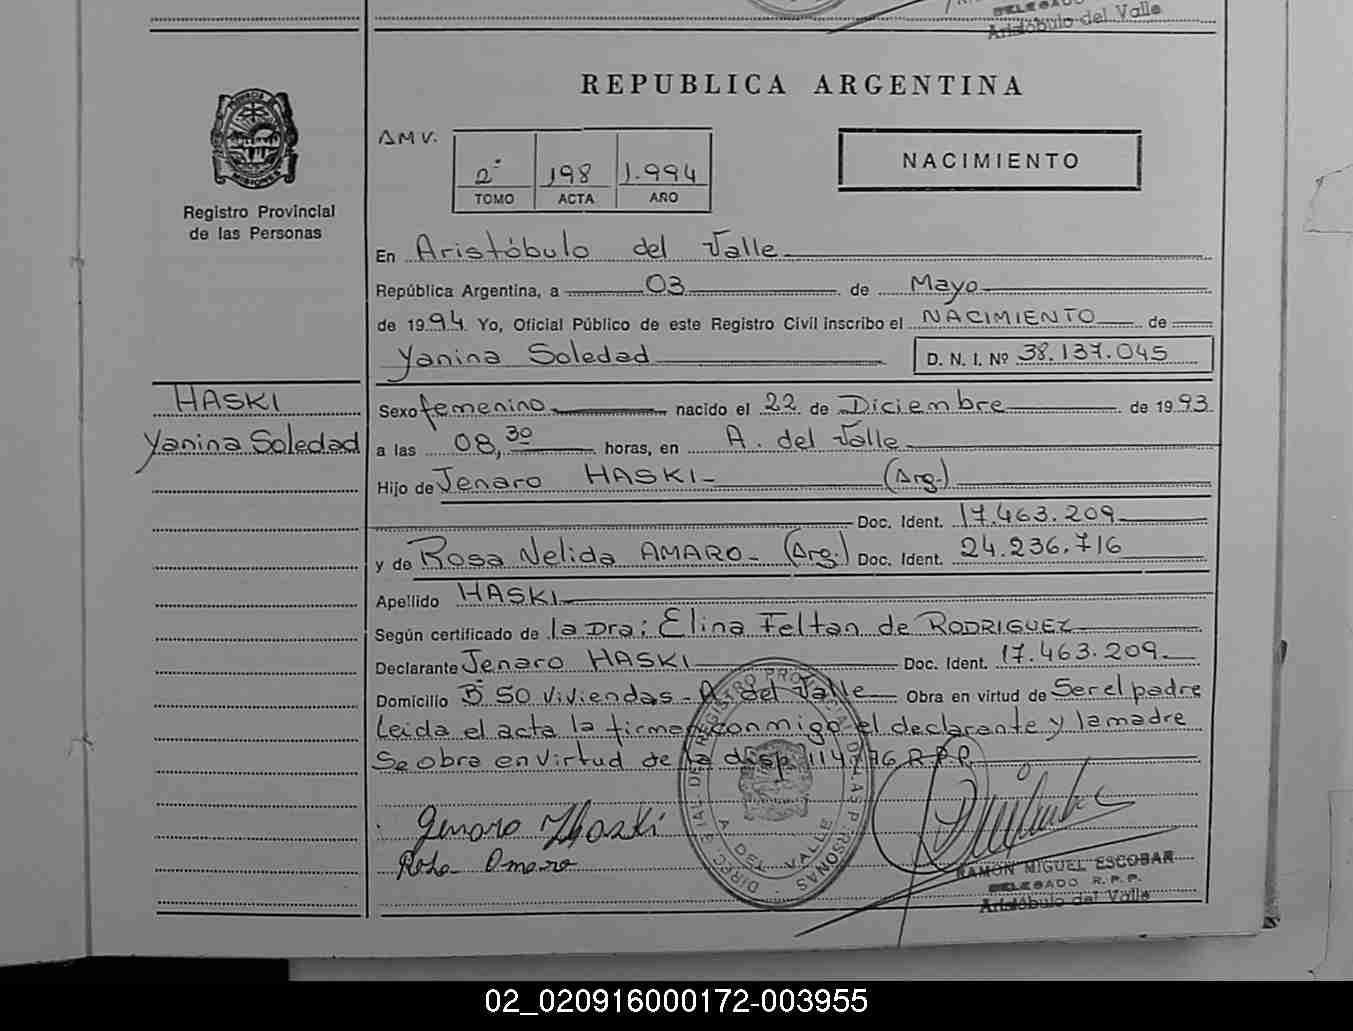 DELEGADO
Aristóbulo del Valle
REPUBLICA ARGENTINA
PROVINCIA DE
MISIONES
Registro Provincial
de las Personas
AMV.
2° 198 1.994
TOMO ACTA AÑO
NACIMIENTO
En Aristóbulo del Valle
República Argentina, a 03 de Mayo
de 1994 Yo, Oficial Público de este Registro Civil inscribo el NACIMIENTO de
Yanina Soledad D. N. I. Nº 38.137.045
HASKI
Yanina Soledad
Sexo femenino nacido el 22 de Diciembre de 1993
a las 08,30 horas, en A. del Valle
Hijo de Jenaro HASKI- (Arg.)
Doc. Ident. 17.463.209
y de Rosa Nelida AMARO- (Arg.) Doc. Ident. 24.236.716
Apellido HASKI
Según certificado de la Dra: Elina Feltan de RODRIGUEZ
Declarante Jenaro HASKI Doc. Ident. 17.463.209
Domicilio B° 50 Viviendas - A. del Valle Obra en virtud de Ser el padre
Leida el acta la firman conmigo el declarante y la madre
Se obra en virtud de la disp. 114/76 R.P.P.
Genaro Haski
Rosa Amaro
REGISTRO PROVINCIAL DE LAS PERSONAS
A. DEL VALLE
RAMON MIGUEL ESCOBAR
DELEGADO R. P. P.
Aristóbulo del Valle
02_020916000172-003955